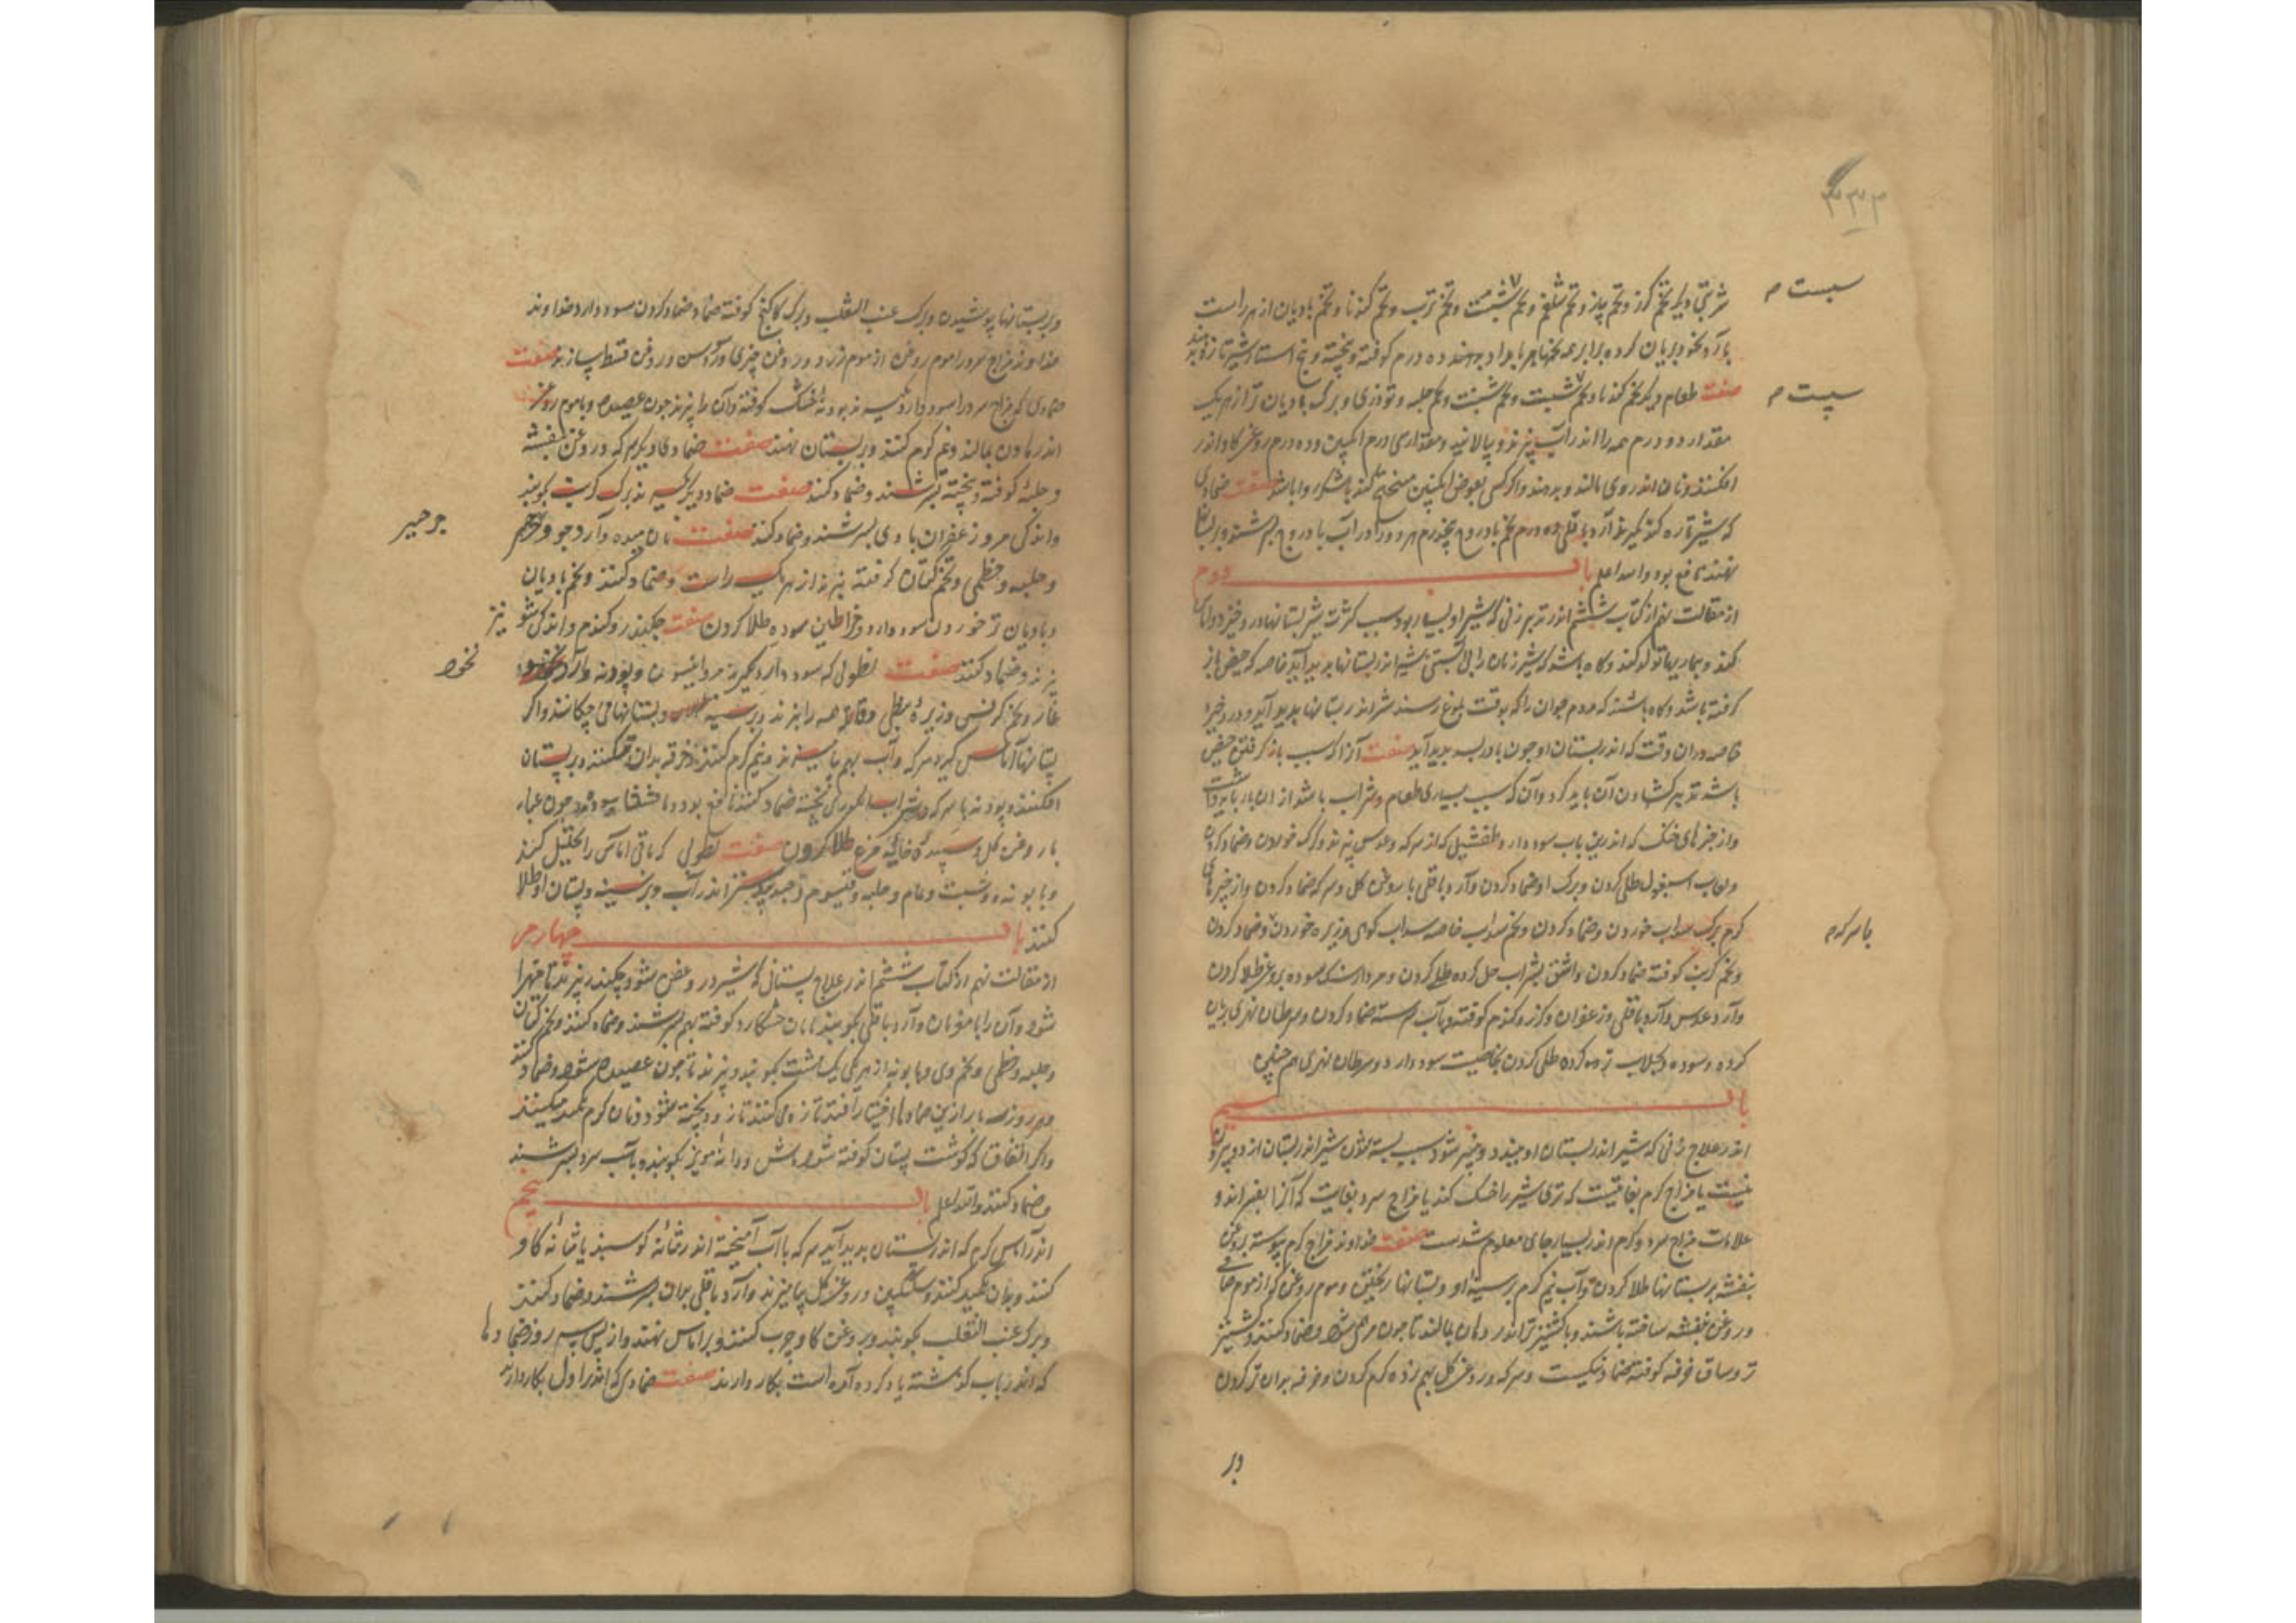 ۳۴۳
شربتی دیگر تخم گزر و تخم پیاز و تخم شلغم و تخم شبت و تخم ترب و تخم گندنا و تخم بادیان از هر راست
سبست م
با آرد نخود بریان کرده برابر همه تخمها هر بامداد بدهند ده درم کوفته و بیخته و پنج استار شیر تازه
صفت طعام دیگر تخم گندنا و تخم سبست و تخم شبت و تخم حلبه و تودری و برگ بادیان تر از هر یک
سپست م
مقدار دو درم همه را اندر آب بپزند و بپالایند و مقداری درم انگبین و ده درم روغن گاو اندر
افکنند و نان اندر وی مالند و بدهند و اگر کسی بعوض انگبین کند با شکر روا باشد صفت ضمادی
که شیر تازه کند بگیرند آرد باقلی ده درم تخم بادروج پنجدرم هر دو را در آب بادروج بسرشند و بر پستانها
نهند نافع بود والله اعلم باب دوم
از مقالت نهم از کتاب ششم اندر تدبیر زنی که شیر او بسیار بود سبب کثرت شیر پستانها درد خیزد و اماس
کند و بیماریها تولد کند و گاه باشد که شیر زنان را بی آبستنی شیر اندر پستانها پدید آید خاصه که حیض باز
گرفته باشد و گاه باشد که مردم جوان را که بوقت بلوغ رسند شیر اندر پستانها پدید آید و درد خیزد
خاصه در ان وقت که اندر پستان او چون بادریسه پدید آید صفت آنرا که سبب باز گرفتن حیض
باشد تدبیر گشادن آن باید کرد و آن که سبب بسیاری طعام و شراب باشد از ان باز باید داشت
و از چیزهای خنک که اندرین باب سود دارد طفشیل که از سرکه و عدس پزند و برگ خوردن و ضماد کردن
و لعاب اسبغول طلی کردن و برگ او ضماد کردن و آرد باقلی با روغن گل و سرکه ضماد کردن و از چیزهای
گرم برگ سداب خوردن و ضماد کردن و تخم سداب خاصه سداب کوهی و زیره خوردن و ضماد کردن
با سرکه م
و تخم کرنب کوفته ضماد کردن و اشق بشراب حل کرده طلی کردن و مرداسنگ سوده بروغن طلا کردن
و آرد عدس و آرد باقلی و زعفران و گزر و گندم کوفته و بآب سرشته ضماد کردن و سرطان نهری بریان
کرده و سوده و بگلاب تر کرده طلی کردن بخاصیت سود دارد و سرطان نهری هم چنین
باب سیم
اندر علاج زنی که شیر اندر پستان او ببندد و پنیر شود سبب بسته شدن شیر اندر پستان از دو بیرون
نیست یا مزاج گرم بغایتست که تری شیر را خشک کند یا مزاج سرد بغایت که آنرا بفسراند و
علامات مزاج سرد و گرم اندر بسیار جای معلوم شدست صفت خداوند مزاج گرم پیوسته بروغن
بنفشه بر پستانها طلا کردن و آب نیم گرم بر سینه او و پستانها ریختن و موم روغن که از موم صافی
و روغن بنفشه ساخته باشند و با کشنیز تر اندر هاون بمالند تا چون مرهم شود و ضماد کنند و کشنیز
تر و ساق خرفه کوفته ضماد نیکست و سرکه و روغن گل بهم زده گرم کردن و خرقه بدان تر کردن
وبر
وبر پستانها پوشیدن و برگ عنب الثعلب و برگ کاکنج کوفته ضماد کردن سود دارد خداوند
خداوند مزاج سرد را موم روغن از موم زرد و روغن خیری و روغن سوسن و روغن قسط سازند صفت
ضمادی که مزاج سرد را سود دارد بگیرند پودنه خشک کوفته و آن را بپزند چون عصیده و با موم روغن
اندر هاون بمالند و نیم گرم کنند و بر پستان نهند صفت ضمادی دیگر سرکه و روغن بنفشه
و حلبه کوفته و بیخته بسرشند و ضماد کنند صفت ضماد دیگر بگیرند برگ کرنب بکوبند
و اندکی مر و زعفران با وی بسرشند و ضماد کنند صفت نان میده و آرد جو و
جرجیر
و حلبه و خطمی و تخم کتان کرفته بپزند از هر یک راست و ضماد کنند و تخم بادیان
و بادیان تر خوردن سود دارد و خراطین سوده طلا کردن صفت چکندر و گندم و اندکی شو
نیز
بپزند و ضماد کنند صفت نطولی که سود دارد بگیرند انیسون و پودنه و آرد
نخود
غار و تخم کرفس و زیره نبطی و قاقله همه را بپزند و بر سینه و پستانها می چکانند و اگر
پستانها آماس گیرد سرکه و آب بهم بیامیزند و نیم گرم کنند و خرقه بدان تر کنند و بر پستان
افکنند و پودنه با سرکه و شراب انگوری پخته ضماد کنند نافع بود و مارقشیشا سوده چون غبار
با روغن گل و سپیده خایه مرغ طلا کردن صفت نطولی که باقی اماس را تحلیل کند
و بابونه و شبت و نمام و حلبه و قیسوم و جندبیدستر اندر آب و بر سینه و پستان او طلا
کنند باب چهارم
از مقالت نهم از کتاب ششم اندر علاج پستانی که شیر در وی عفن شود چکندر بپزند تا مهرا
شود و آن را با مغز نان و آرد باقلی بکوبند یا نان خشکار کوفته بهم بسرشند و ضماد کنند و تخم کتان
و حلبه و خطمی و تخم وی و بابونه از هر یکی یک مشت بکوبند و بپزند تا چون عصیده شود و ضماد کنند
و هر روز سه بار ازین ضمادها اختیار افتد تازه می کنند تا زود پخته شود و نان گرم تکمید میکنند
و اگر اتفاق که گوشت پستان کوفته شود ماش و دانه مویز بکوبند و بآب سرد بسرشند
و ضماد کنند والله اعلم باب پنجم
اندر آماس گرم که اندر پستان پدید آید سرکه باآب آمیخته اندر مثانه گوسبند یا مثانه گاو
کنند و بدان تکمید کنند و سکنگبین و روغن گل بیامیزند و آرد باقلی بدان بسرشند و ضماد کنند
و برگ عنب الثعلب بکوبند و بروغن گاو چرب کنند و بر اماس نهند و از پس سه روز ضمادها
که اندر باب گذشته یاد کرده آمده است بکار دارند صفت ضمادی که اندر اول بکار دارند